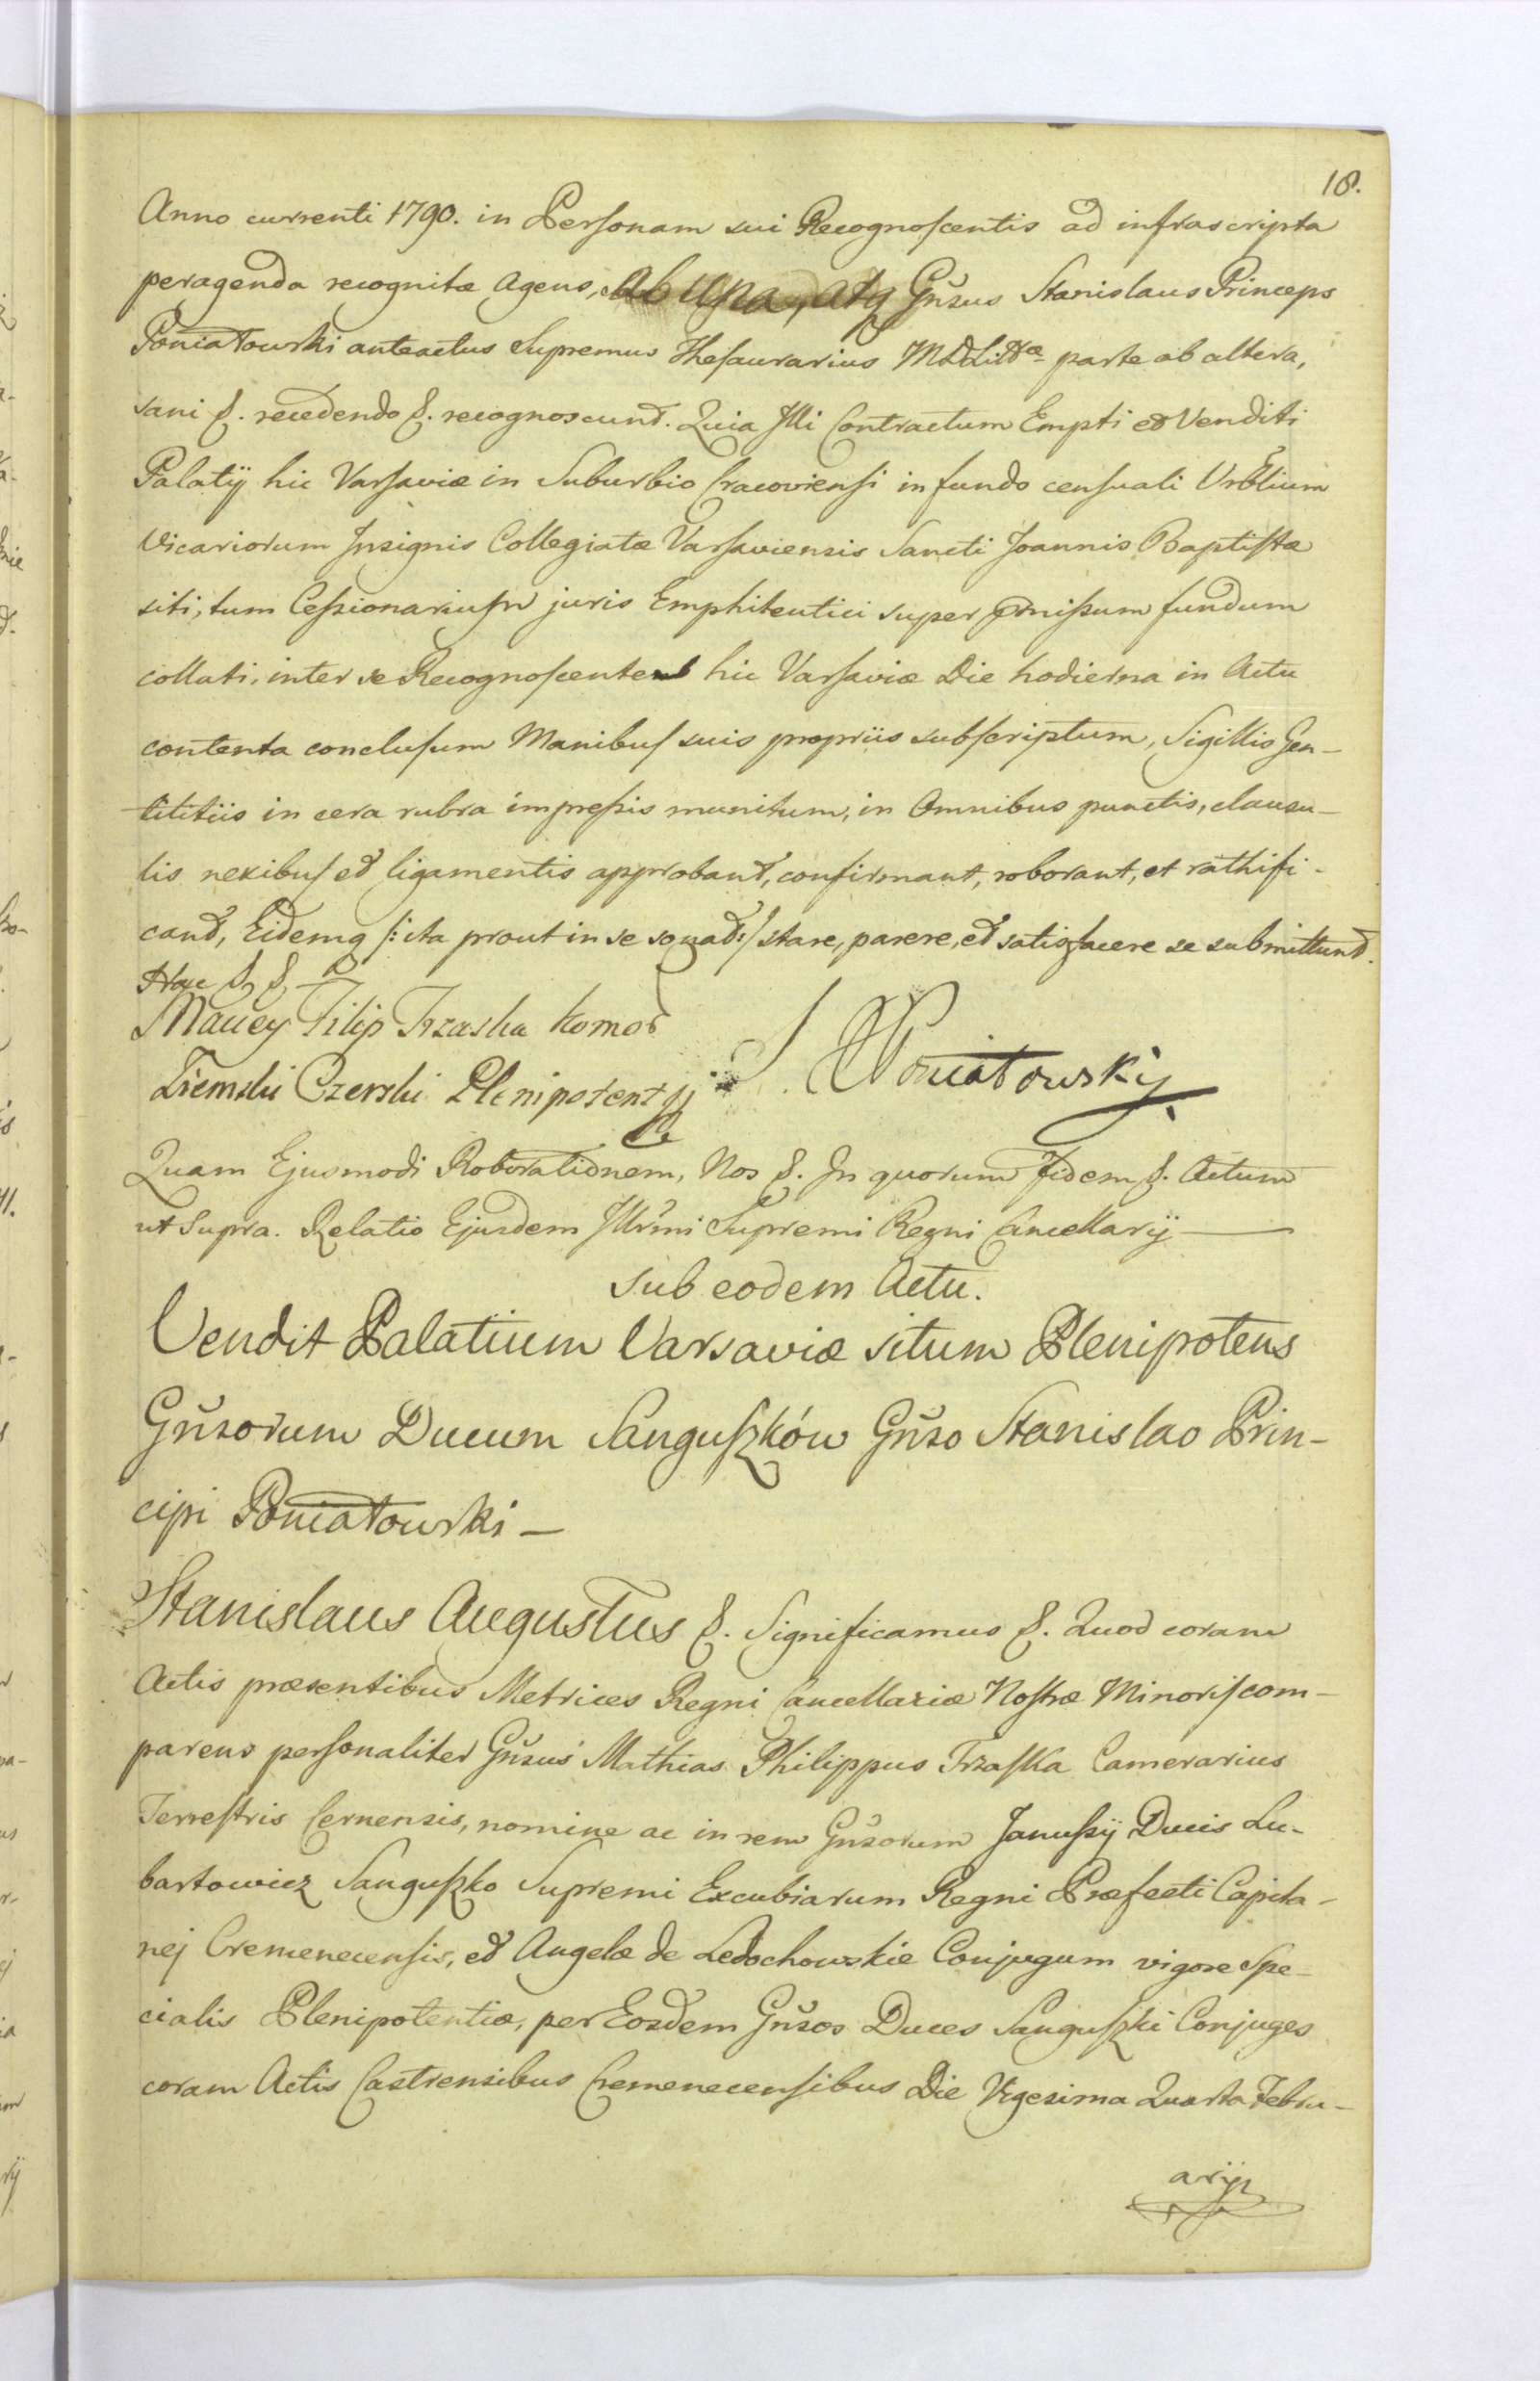 18.
Anno currenti 1790. in Personam sui Recognoscentis ad infrascripta
peragenda recognitæ Agens, ab una, atq Gñsus Stanislaus Princeps
Poniatowski anteactus Supremus Thesaurarius MDLittæ parte ab altera,
sani &. recedendo &. recognoscunt. Quia Illi Contractum Empti et Venditi
Palatij hic Varsaviæ in Suburbio Cracoviensi in fundo censuali Vrblium
Vicariorum Insignis Collegiatæ Varsaviensis Sancti Joannis Baptistæ
siti, tum Cessionarium juris Emphiteutici super præmissum fundum
collati, inter se Recognoscentes hic Varsaviæ Die hodierna in Actu
contenta conclusum Manibus suis propriis subscriptum, Sigillis Gen-
tilitiis in cera rubra impressis munitum, in Omnibus punctis, clausu-
lis nexibus et ligamentis approbant, confirmant, roborant, et rathifi-
cant, Eidemq /: ita prout in se sonat :/ stare, parere, et satisfacere se submittunt.
Hac &, &,
Maciey Filip Trzaska Komor
Ziemski Czerski Plenipotent
S. Poniatowski
Quam Ejusmodi Roborationem, Nos &. In quorum fidem &. Actum
ut Supra. Relatio Ejusdem Illrmi Supremi Regni Cancellarij
Sub eodem Actu.
Vendit Palatium Varsaviæ situm Plenipotens
Gñsorum Ducum Sanguszków Gñso Stanislao Prin-
cipi Poniatowski —
Stanislaus Augustus &. Significamus &. Quod coram
Actis præsentibus Metrices Regni Cancellariæ Nostræ Minoris com-
parens personaliter Gñsus Mathias Philippus Trzaska Camerarius
Terrestris Cernensis, nomine ac in rem Gñsorum Janussij Ducis Lu-
bartowicz Sanguszko Supremi Excubiarum Regni Præfecti Capita-
nej Cremenecensis, et Angelæ de Ledochowskie Conjugum vigore Spe-
cialis Plenipotentiæ, per Eosdem Gñsos Duces Sanguszki Conjuges
coram Actis Castrensibus Cremenecensibus Die Vigesima Quarta Febru-
arij